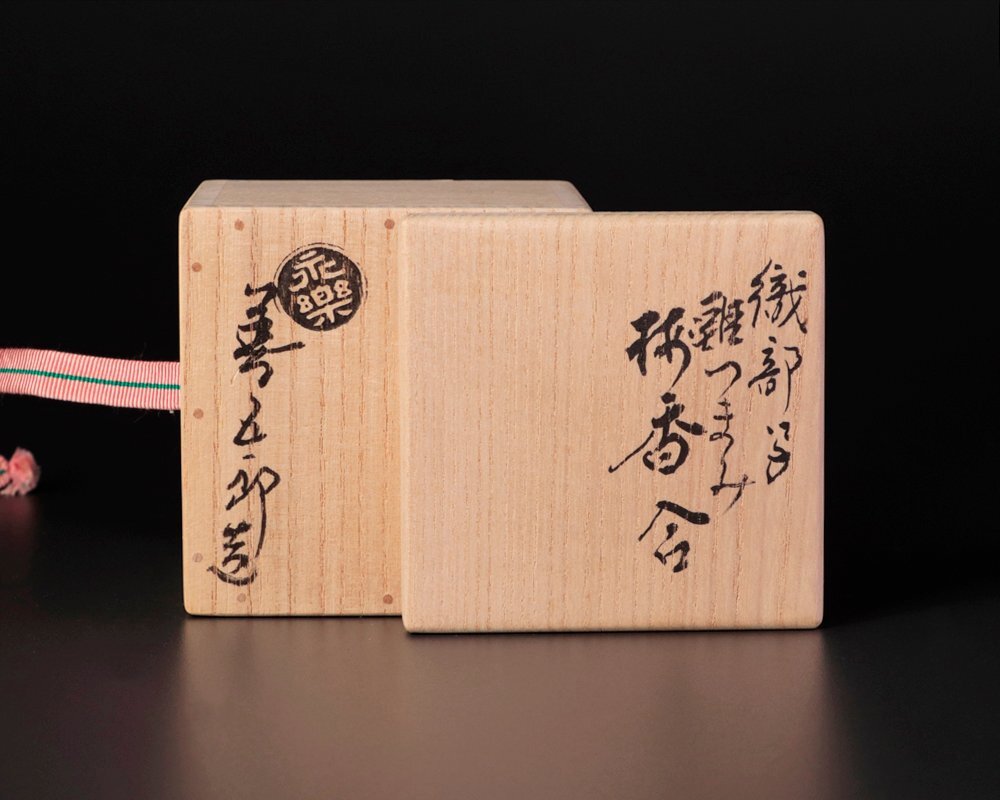 織部写
つまみ
梅香合
永樂
善五郎造